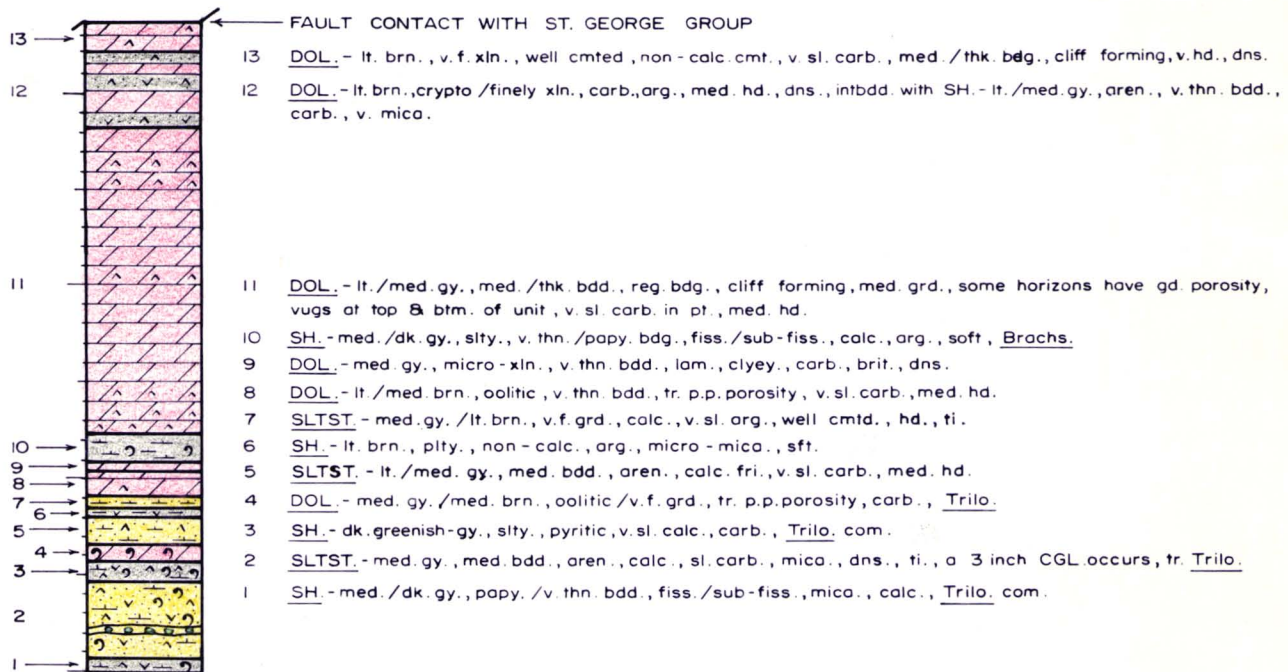 FAULT CONTACT WITH ST. GEORGE GROUP
13 DOL.- lt. brn., v.f. xln., well cmted, non-calc. cmt., v. sl. carb., med./thk. bdg., cliff forming, v. hd., dns.
12 DOL.- lt. brn., crypto/finely xln., carb., arg., med. hd., dns., intbdd. with SH.- lt./med. gy., aren., v. thn. bdd.,
carb., v. mica.
11 DOL.- lt./med. gy., med./thk. bdd., reg. bdg., cliff forming, med. grd., some horizons have gd. porosity,
vugs at top & btm. of unit, v. sl. carb. in pt., med. hd.
10 SH.- med./dk. gy., slty., v. thn./papy. bdg., fiss./sub-fiss., calc., arg., soft, Brachs.
9 DOL.- med. gy., micro-xln., v. thn. bdd., lam., clyey., carb., brit., dns.
8 DOL.- lt./med. brn., oolitic, v. thn. bdd., tr. p.p. porosity, v. sl. carb., med. hd.
7 SLTST.- med. gy./lt. brn., v.f. grd., calc., v. sl. arg., well cmtd., hd., ti.
6 SH.- lt. brn., plty., non-calc., arg., micro-mica., sft.
5 SLTST.- lt./med. gy., med. bdd., aren., calc. fri., v. sl. carb., med. hd.
4 DOL.- med. gy./med. brn., oolitic/v.f. grd., tr. p.p. porosity, carb., Trilo.
3 SH.- dk. greenish-gy., slty., pyritic, v. sl. calc., carb., Trilo. com.
2 SLTST.- med. gy., med. bdd., aren., calc., sl. carb., mica., dns., ti., a 3 inch CGL. occurs, tr. Trilo.
1 SH.- med./dk. gy., papy./v. thn. bdd., fiss./sub-fiss., mica., calc., Trilo. com.
13
12
11
10
9
8
7
6
5
4
3
2
1